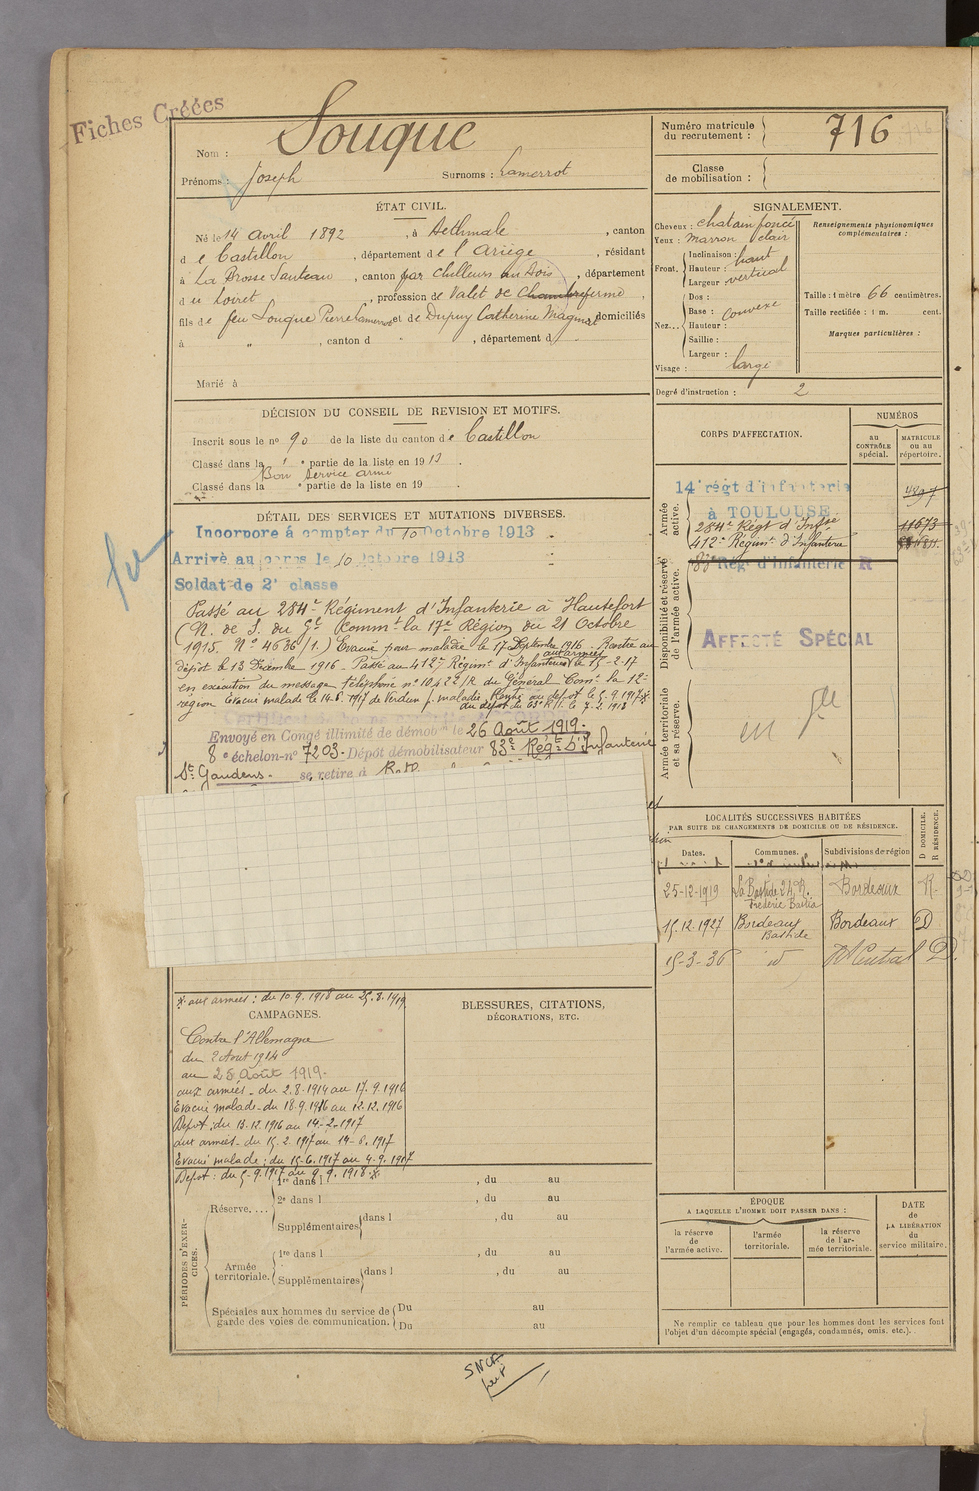 Fiches Créées
Nom : Souque
Prénoms : Joseph Surnoms : Lamerrot
Numéro matricule du recrutement : 716
Classe de mobilisation :
ÉTAT CIVIL.
Né le 14 Avril 1892, à Aethmale, canton
de Castillon, département de l'Ariège, résidant
à La Brosse Santeau, canton par Chilleurs au bois, département
du Loiret, profession de Valet de Chambre ferme,
fils de feu Souque Pierre Lamerrot et de Dupuy Catherine Magnat domiciliés
à " , canton d " , département d " .
Marié à
SIGNALEMENT.
Cheveux : chatain foncé
Yeux : marron clair
Front. Inclinaison : haut
Hauteur : vertical
Largeur :
Nez... Dos :
Base : convexe
Hauteur :
Saillie :
Largeur :
Visage : large
Renseignements physionomiques complémentaires :
Taille : 1 mètre 66 centimètres.
Taille rectifiée : 1 m. cent.
Marques particulières :
Degré d'instruction : 2
DÉCISION DU CONSEIL DE REVISION ET MOTIFS.
Inscrit sous le n° 90 de la liste du canton de Castillon
Classé dans la 1e partie de la liste en 1913.
Bon service armé
Classé dans la e partie de la liste en 19 .
DÉTAIL DES SERVICES ET MUTATIONS DIVERSES.
Incorporé à compter du 10 Octobre 1913
Arrivé au corps le 10 Octobre 1913
Soldat de 2e classe
Passé au 284e Régiment d'Infanterie à Hautefort
(N. de S. du Gl Commt la 17e Région du 21 Octobre
1915. N° 4636/1.) Evacué pour maladie le 17 Septembre 1916 - Rentre au
dépôt le 13 Décembre 1916 - Passé au 412e Régimt d'Infanterie aux armées le 15-2-17
en exécution du message téléphoné n° 10422/R du Général Comt la 12e
région Evacué malade le 14-6-1917 de Verdun p. maladie. Rentré au dépôt le 5-9-1917 x
du dépôt du 63e R.I. le 7.2.1918
Envoyé en Congé illimité de démobon le 26 Août 1919.
8e échelon - n° 7203. Dépôt démobilisateur 83e Régt d'Infanterie
St Gaudens. se retire à
CORPS D'AFFECTATION.
NUMÉROS
au CONTRÔLE spécial.
MATRICULE ou au répertoire.
Armée active.
14e régt d'infanterie
à TOULOUSE
284e Régt d'Infrie 11673
412e Régimt d'Infanterie
Disponibilité et réserve de l'armée active.
83e Rég. d'Infanterie R
AFFECTÉ SPÉCIAL
Armée territoriale et sa réserve.
LOCALITÉS SUCCESSIVES HABITÉES
PAR SUITE DE CHANGEMENTS DE DOMICILE OU DE RÉSIDENCE.
Dates. Communes. Subdivisions de région D DOMICILE. R RÉSIDENCE.
25-12-1919 La Bastide 24, R. Frédéric Bastia Bordeaux R.
15.12.1927 Bordeaux Bastide Bordeaux D
15-3-36 id D.
x aux armées : du 10.9.1918 au 25.8.1919
CAMPAGNES.
Contre l'Allemagne
du 2 Aout 1914
au 25 Août 1919.
aux armées - du 2.8.1914 au 17.9.1916
Evacué malade - du 18.9.1916 au 12.12.1916
Depot : du 13.12.1916 au 14-2-1917
aux armées - du 15.2.1917 au 14-6.1917
Evacué malade : du 15-6.1917 au 4-9.1917
Depot : du 5-9.1917 au 9.9.1918 x
BLESSURES, CITATIONS, DÉCORATIONS, ETC.
PÉRIODES D'EXERCICES.
Réserve.... 1re dans l , du au
2e dans l , du au
Supplémentaires dans l , du au
Armée territoriale. 1re dans l , du au
Supplémentaires dans l , du au
Spéciales aux hommes du service de garde des voies de communication. Du au
Du au
ÉPOQUE
A LAQUELLE L'HOMME DOIT PASSER DANS :
la réserve de l'armée active.
l'armée territoriale.
la réserve de l'armée territoriale.
DATE de LA LIBÉRATION du service militaire.
Ne remplir ce tableau que pour les hommes dont les services font
l'objet d'un décompte spécial (engagés, condamnés, omis. etc.).
SNCF